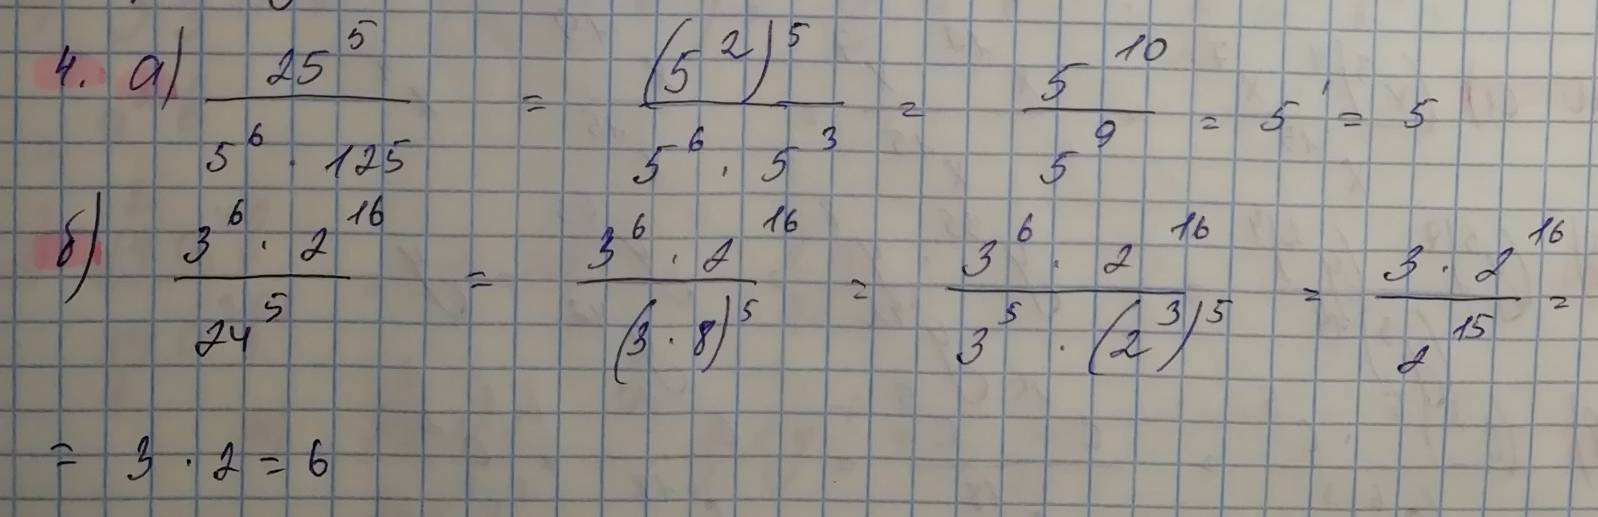 4. а) 25^5 / (5^6 · 125) = (5^2)^5 / (5^6 · 5^3) = 5^10 / 5^9 = 5^1 = 5
б) (3^6 · 2^16) / 24^5 = (3^6 · 2^16) / (3 · 8)^5 = (3^6 · 2^16) / (3^5 · (2^3)^5) = (3 · 2^16) / 2^15 =
= 3 · 2 = 6